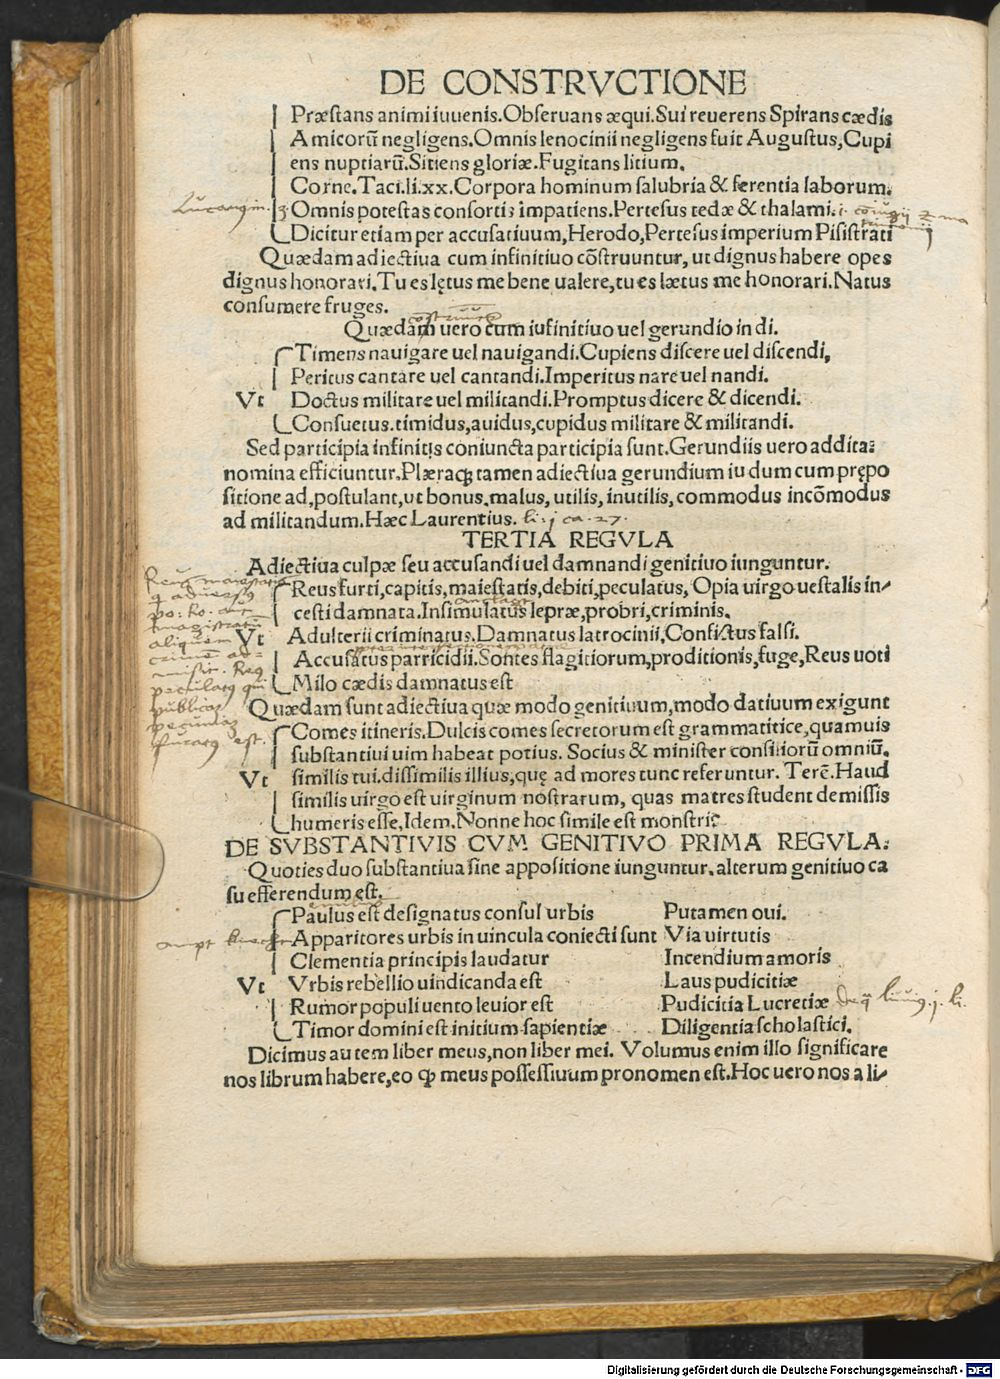 DE CONSTRVCTIONE
Præstans animi iuuenis.Obseruans æqui.Sui reuerens Spirans cædis
Amicorū negligens.Omnis lenocinii negligens fuit Augustus,Cupi
ens nuptiarū.Sitiens gloriæ.Fugitans litium.
Corne.Taci.li.xx.Corpora hominum salubria & ferentia laborum.
Omnis potestas consortis impatiens.Pertesus tedæ & thalami.
Dicitur etiam per accusatiuum,Herodo,Pertesus imperium Pisistrati
Quædam adiectiua cum infinitiuo cōstruuntur, ut dignus habere opes
dignus honorari.Tu es lętus me bene ualere,tu es lætus me honorari.Natus
consumere fruges.
Quædam uero cum iufinitiuo uel gerundio in di.
Timens nauigare uel nauigandi.Cupiens discere uel discendi,
Peritus cantare uel cantandi.Imperitus nare uel nandi.
Vt Doctus militare uel militandi.Promptus dicere & dicendi.
Consuetus.timidus,auidus,cupidus militare & militandi.
Sed participia infinitis coniuncta participia sunt.Gerundiis uero addita:
nomina efficiuntur.Plæraqꝫ tamen adiectiua gerundium iu dum cum prępo
sitione ad,postulant,ut bonus.malus, utilis, inutilis, commodus incōmodus
ad militandum.Hæc Laurentius. li: j ca.27.
TERTIA REGVLA
Adiectiua culpæ seu accusandi uel damnandi genitiuo iunguntur.
Reus furti,capitis,maiestatis,debiti,peculatus, Opia uirgo uestalis in-
cesti damnata.Insimulatus lepræ,probri,criminis.
Vt Adulterii criminatus.Damnatus latrocinii,Confictus falsi.
Accusatus parricidii.Sontes flagitiorum,proditionis,fuge,Reus uoti
Milo cædis damnatus est
Quædam sunt adiectiua quæ modo genitiuum,modo datiuum exigunt
Comes itineris.Dulcis comes secretorum est grammatitice,quamuis
substantiui uim habeat potius. Socius & minister consiliorū omniū.
Vt similis tui.dissimilis illius,quę ad mores tunc referuntur. Terē.Haud
similis uirgo est uirginum nostrarum, quas matres student demissis
humeris esse,Idem.Nonne hoc simile est monstri?
DE SVBSTANTIVIS CVM GENITIVO PRIMA REGVLA.
Quoties duo substantiua sine appositione iunguntur.alterum genitiuo ca
su efferendum est.
Paulus est designatus consul urbis Putamen oui.
Apparitores urbis in uincula coniecti sunt Via uirtutis
Clementia principis laudatur Incendium amoris
Vt Vrbis rebellio uindicanda est Laus pudicitiæ
Rumor populi uento leuior est Pudicitia Lucretiæ
Timor domini est initium sapientiæ Diligentia scholastici.
Dicimus autem liber meus,non liber mei. Volumus enim illo significare
nos librum habere,eo ꝙ meus possessiuum pronomen est.Hoc uero nos ali-
Digitalisierung gefördert durch die Deutsche Forschungsgemeinschaft - DFG